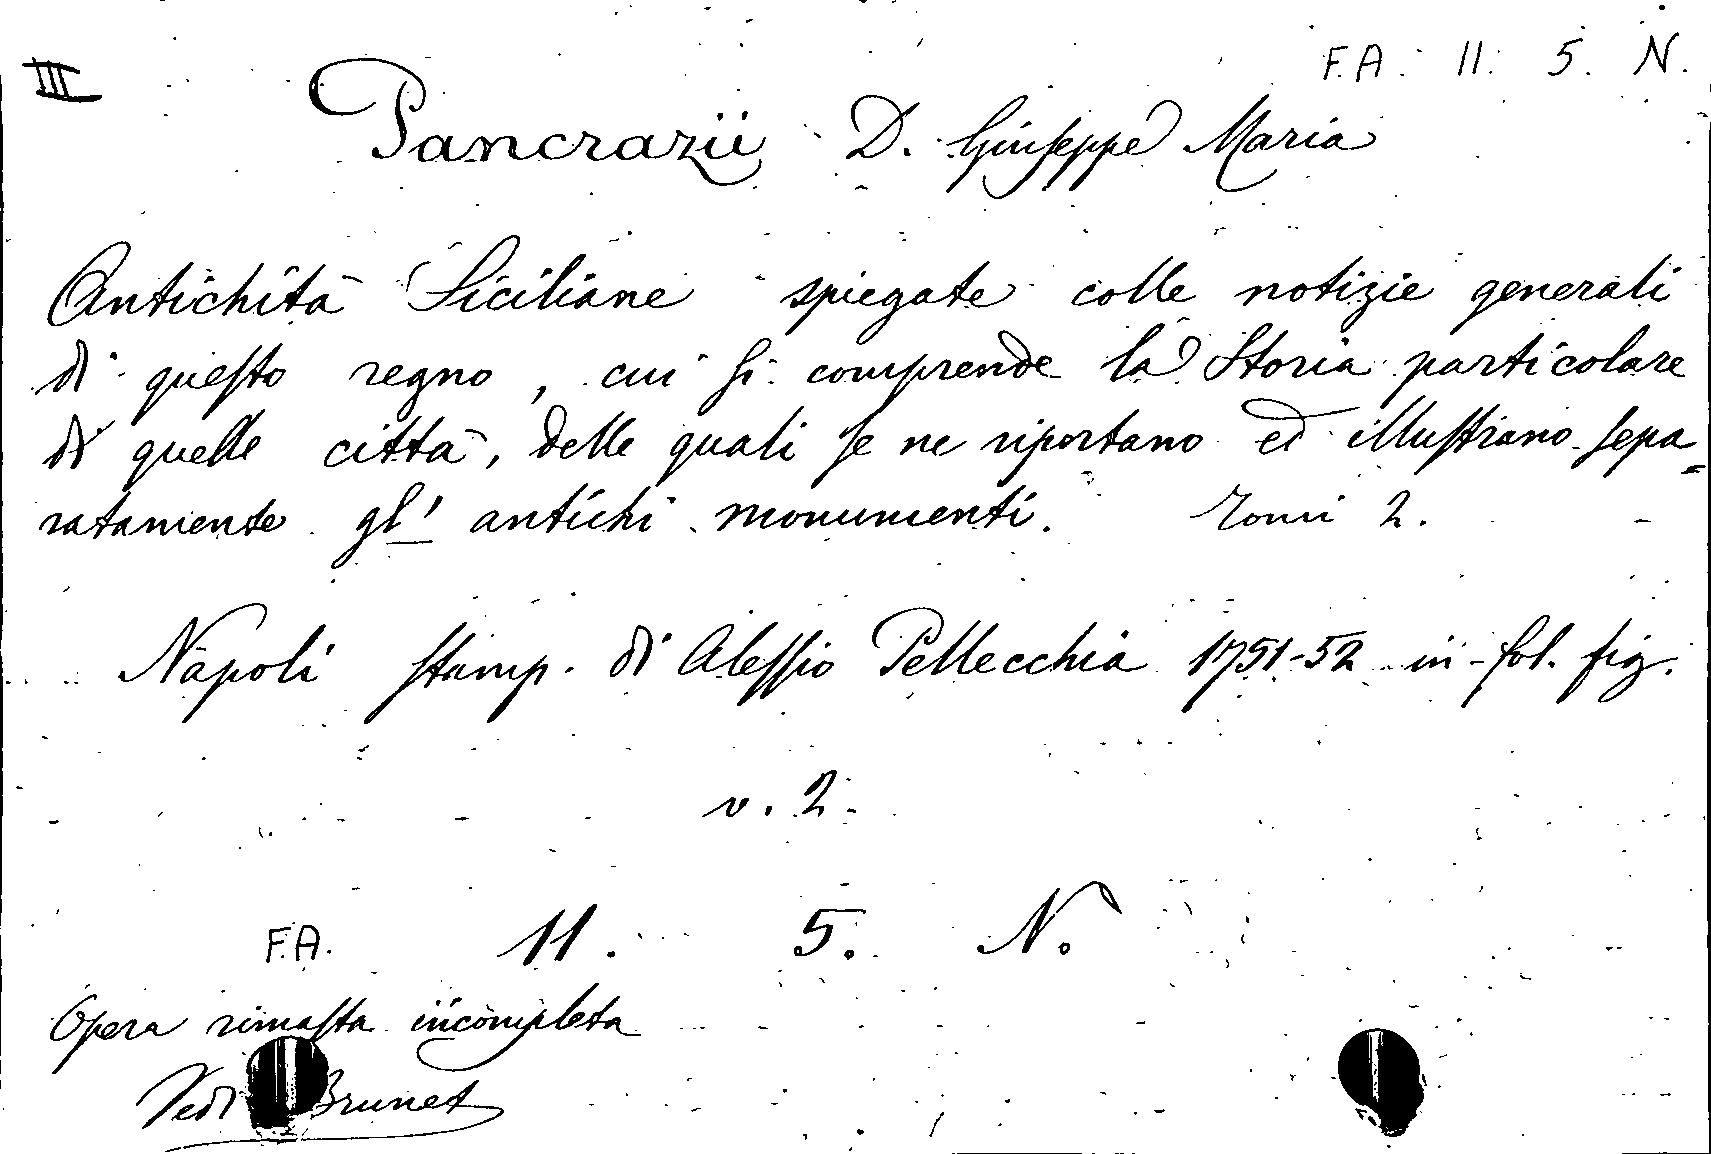 III
F.A. 11. 5. N.
Pancrazii D. Giuseppe Maria
Antichità Siciliane spiegate colle notizie generali
di questo regno, cui si comprende la Storia particolare
di quelle città, delle quali se ne riportano ed illustrano sepa=
ratamente gl' antichi monumenti. Tomi 2.
Napoli stamp. di Alessio Pellecchia 1751-52 in-fol. fig.
v. 2.
F.A. 11. 5. N.
Opera rimasta incompleta
Vedi Brunet